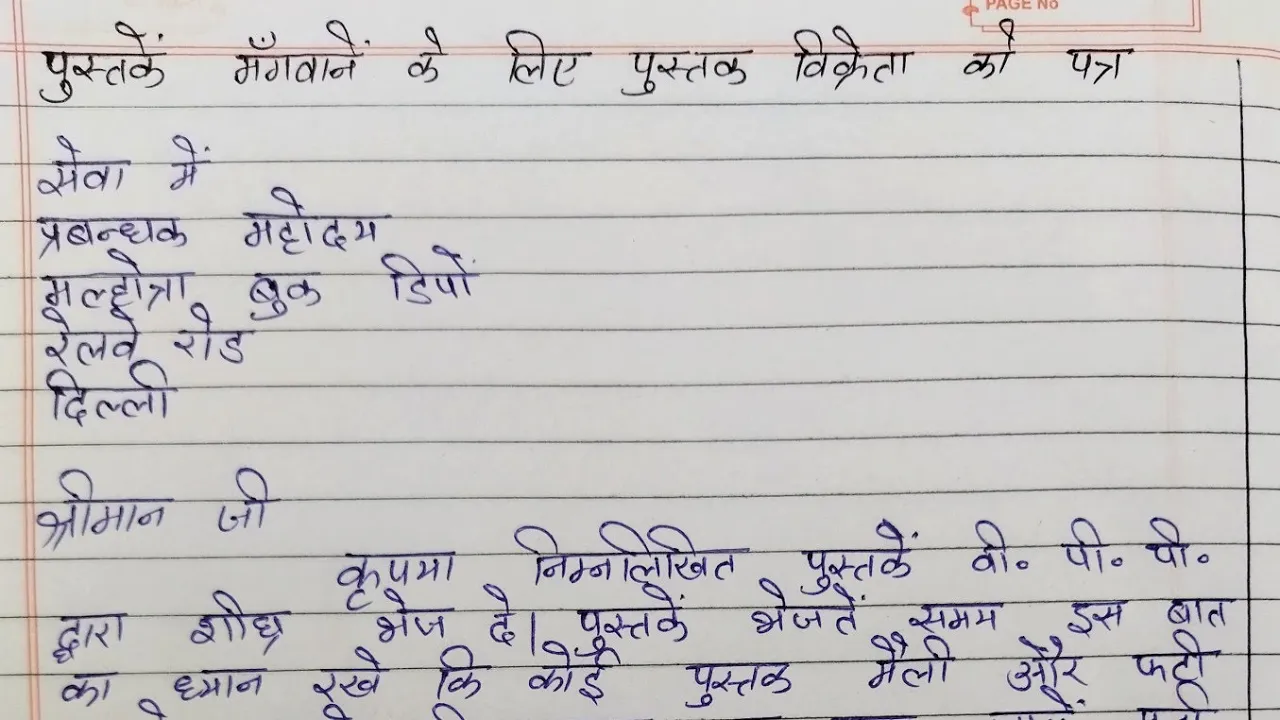 PAGE No
पुस्तकें मँगवानें के लिए पुस्तक विक्रेता को पत्र
सेवा में
प्रबन्धक महोदय
मल्होत्रा बुक डिपों
रेलवे रोड
दिल्ली
श्रीमान जी
कृपया निम्नलिखित पुस्तकें वी. पी. पी.
द्वारा शीघ्र भेज दे। पुस्तकें भेजतें समय इस बात
का ध्यान रखे कि कोई पुस्तक मैली और फटी